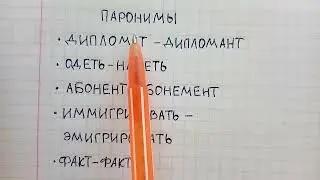 ПАРОНИМЫ
• ДИПЛОМАТ – ДИПЛОМАНТ
• ОДЕТЬ – НАДЕТЬ
• АБОНЕНТ – АБОНЕМЕНТ
• ИММИГРИРОВАТЬ –
ЭМИГРИРОВАТЬ
• ФАКТ –